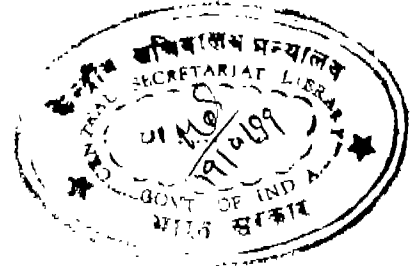 केन्द्रीय सचिवालय ग्रन्थालय
CENTRAL SECRETARIAT LIBRARY
GOVT OF INDIA
भारत सरकार